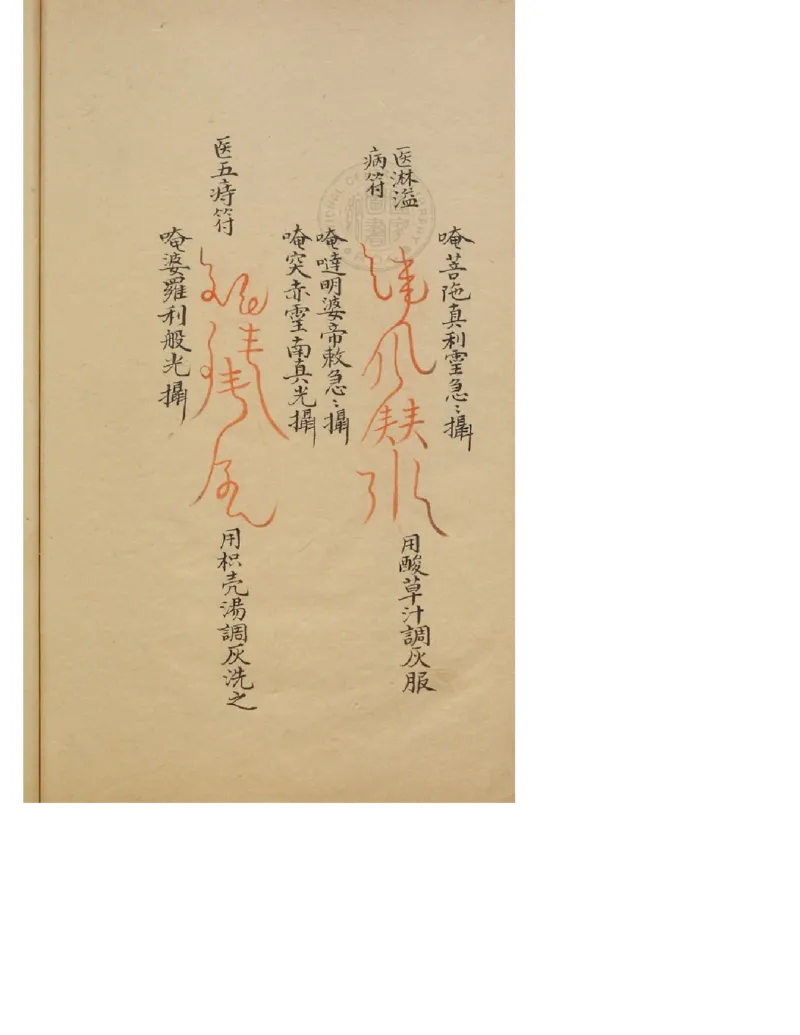 医淋溢
病符
唵菩陁真利霊急〻攝
用酸草汁調灰服
唵噠明婆帝敕急〻攝
唵突赤霊南真光攝
医五痔符
用枳壳湯調灰洗之
唵婆羅利般光攝